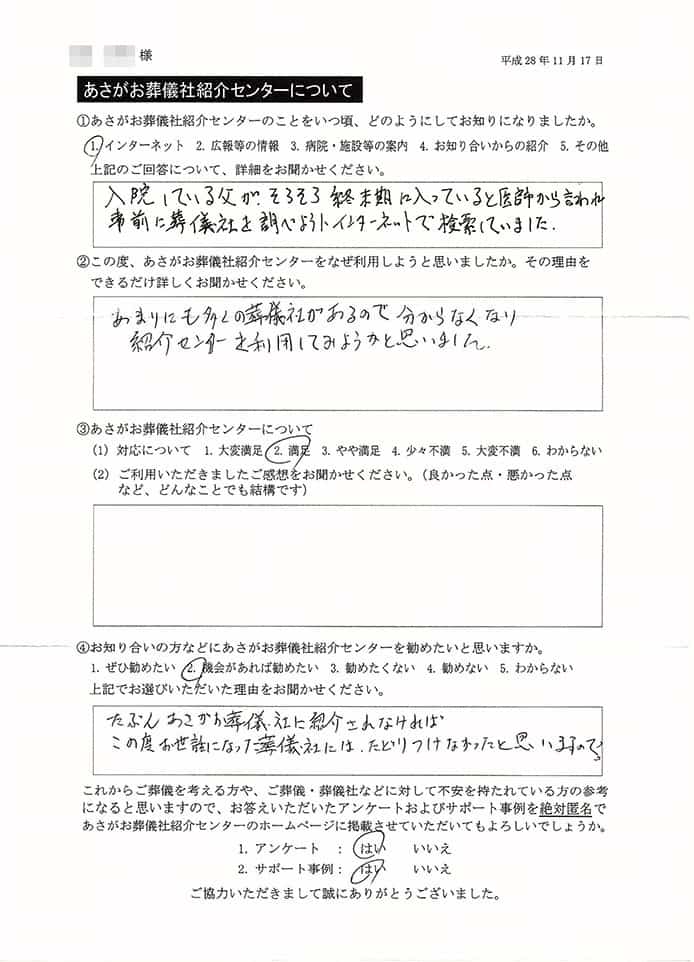 様
平成28年11月17日
あさがお葬儀社紹介センターについて
①あさがお葬儀社紹介センターのことをいつ頃、どのようにしてお知りになりましたか。
1. インターネット 2. 広報等の情報 3. 病院・施設等の案内 4. お知り合いからの紹介 5. その他
上記のご回答について、詳細をお聞かせください。
入院している父が、そろそろ終末期に入っていると医師から言われ
事前に葬儀社を調べようとインターネットで検索していました.
②この度、あさがお葬儀社紹介センターをなぜ利用しようと思いましたか。その理由を
できるだけ詳しくお聞かせください。
あまりにも多くの葬儀社があるので分からなくなり
紹介センターを利用してみようかと思いました.
③あさがお葬儀社紹介センターについて
(1) 対応について 1. 大変満足 2. 満足 3. やや満足 4. 少々不満 5. 大変不満 6. わからない
(2) ご利用いただきましたご感想をお聞かせください。(良かった点・悪かった点
など、どんなことでも結構です)
④お知り合いの方などにあさがお葬儀社紹介センターを勧めたいと思いますか。
1. ぜひ勧めたい 2. 機会があれば勧めたい 3. 勧めたくない 4. 勧めない 5. わからない
上記でお選びいただいた理由をお聞かせください。
たぶんあさがお葬儀社に紹介されなければ
この度お世話になった葬儀社には、たどりつけなかったと思いますので。
これからご葬儀を考える方や、ご葬儀・葬儀社などに対して不安を持たれている方の参考
になると思いますので、お答えいただいたアンケートおよびサポート事例を絶対匿名で
あさがお葬儀社紹介センターのホームページに掲載させていただいてもよろしいでしょうか。
1. アンケート : はい いいえ
2. サポート事例: はい いいえ
ご協力いただきまして誠にありがとうございました。